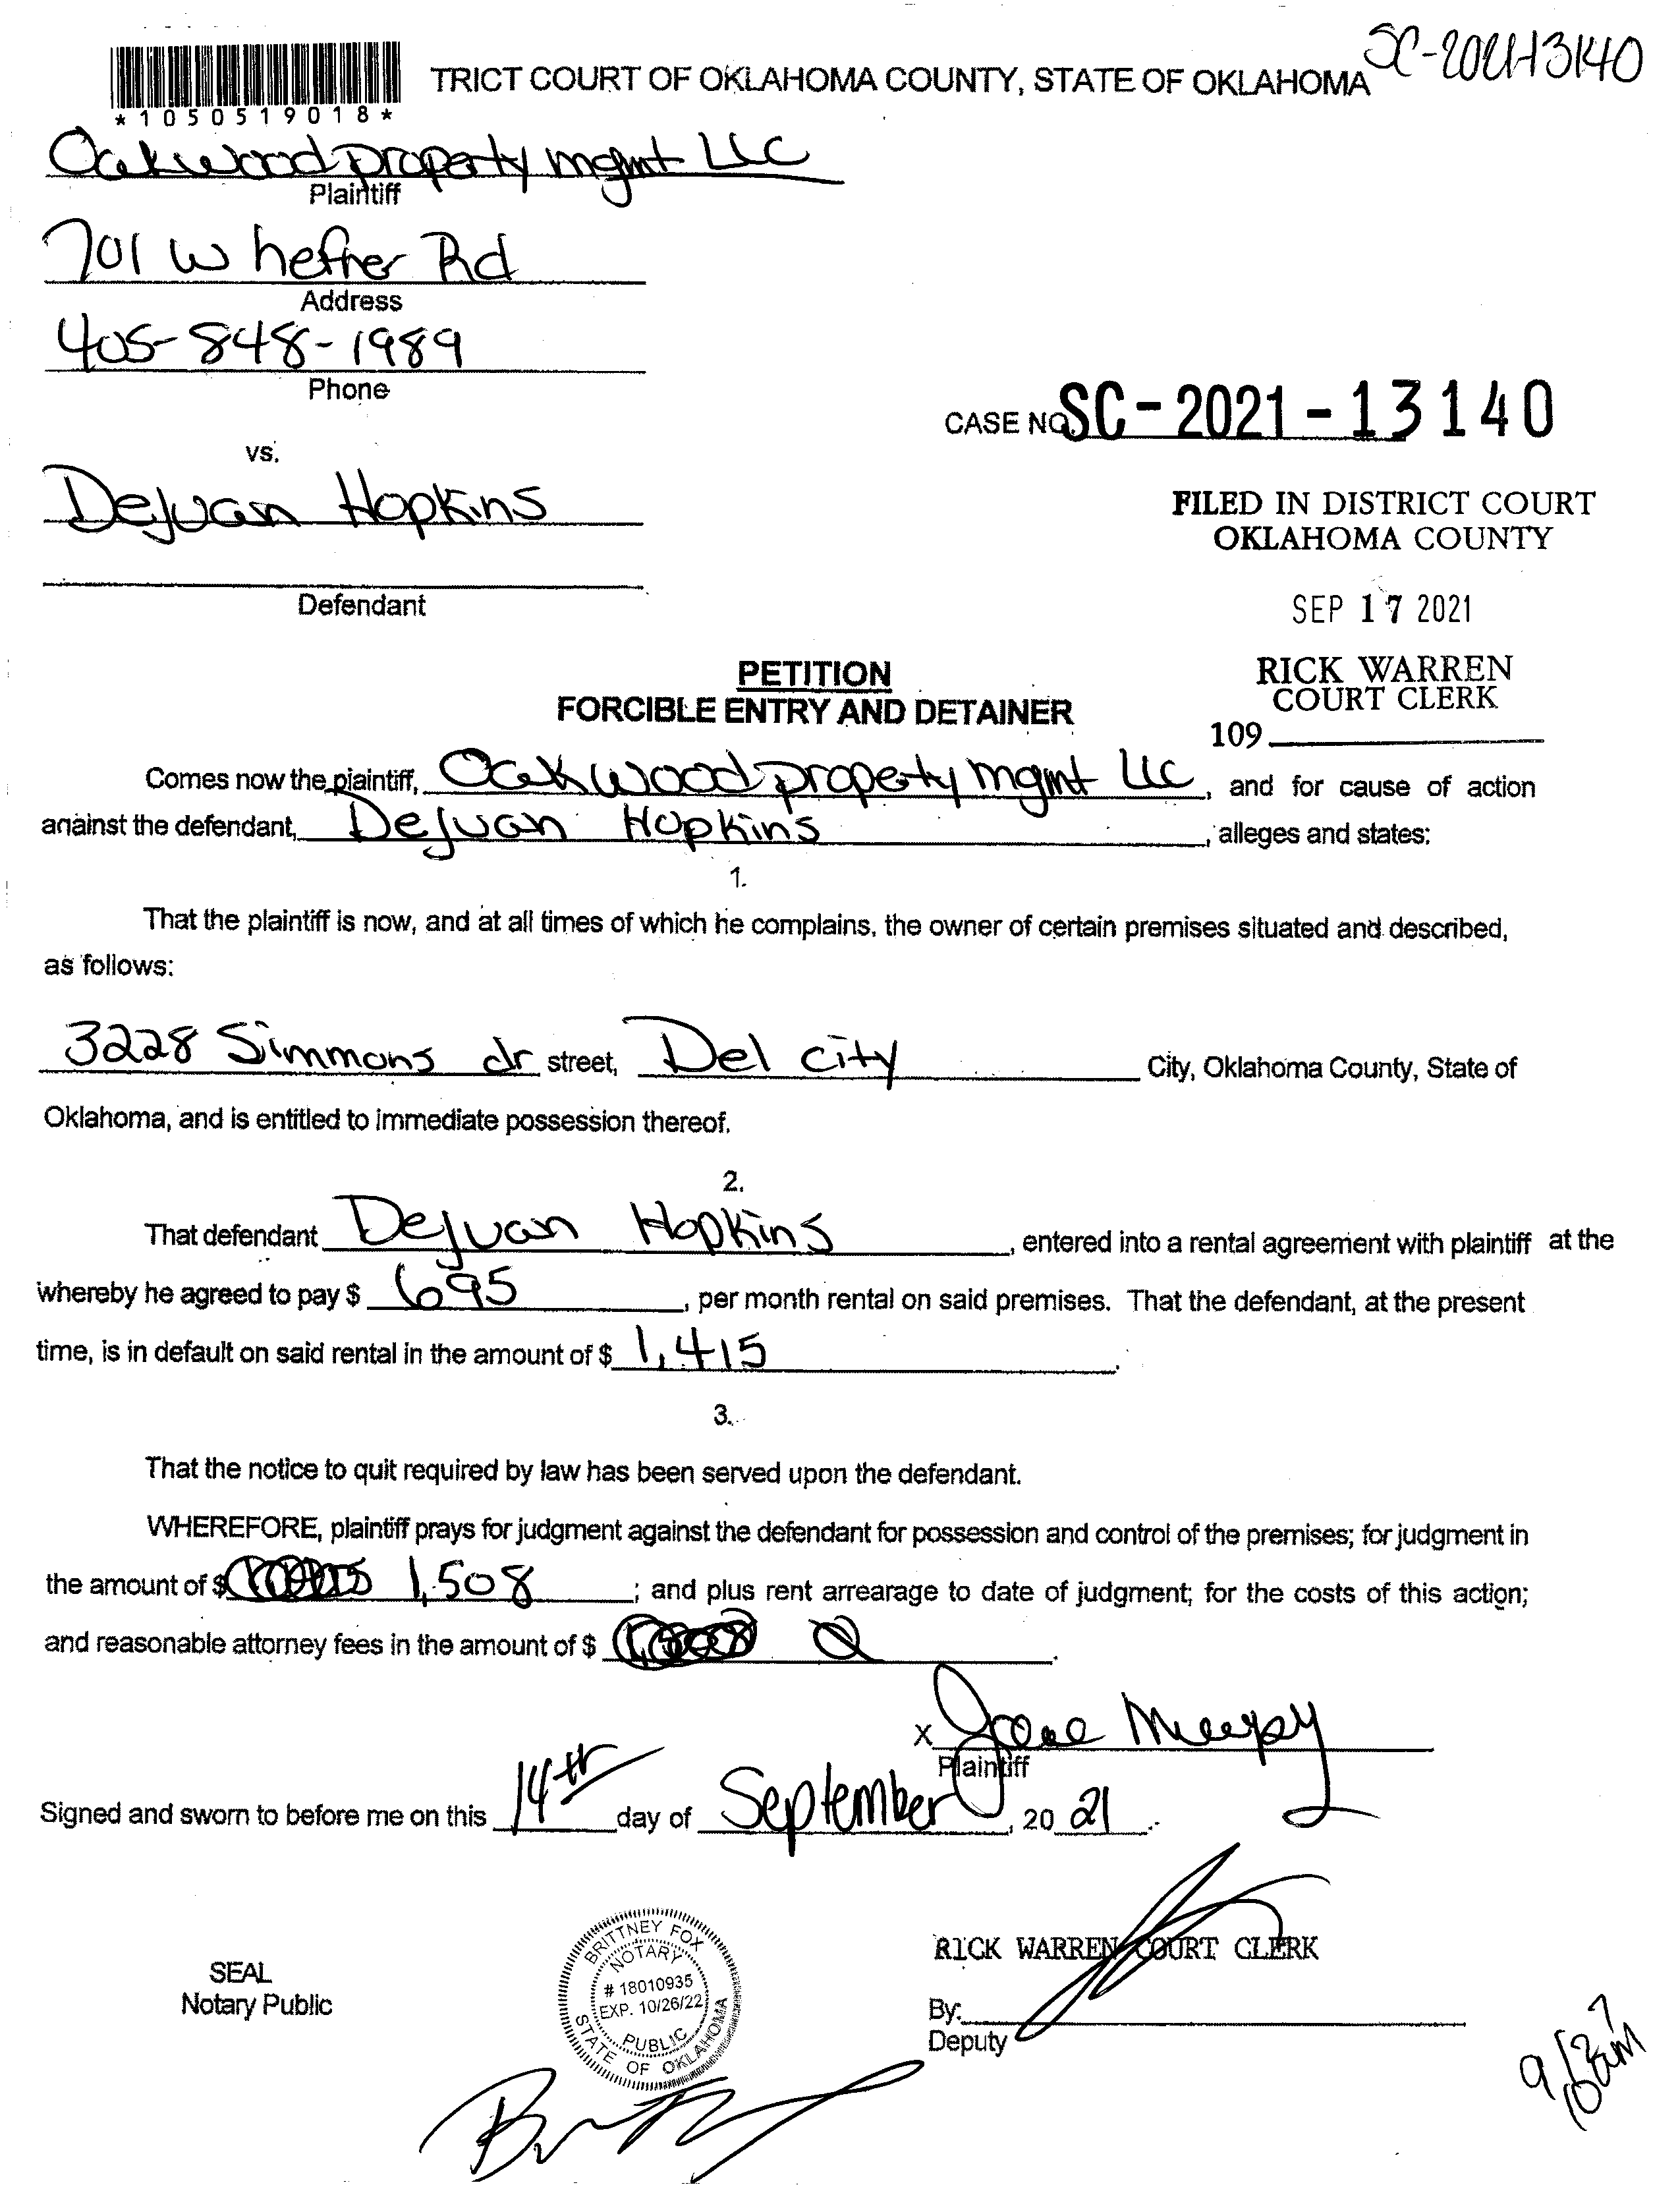 SC-2021-13140
*1050519018*
TRICT COURT OF OKLAHOMA COUNTY, STATE OF OKLAHOMA
Oakwood property mgmt LLC
Plaintiff
701 W hefner Rd
Address
405-848-1989
Phone
CASE NO. SC-2021-13140
vs.
DeJuan Hopkins
FILED IN DISTRICT COURT
OKLAHOMA COUNTY
Defendant
SEP 17 2021
PETITION
FORCIBLE ENTRY AND DETAINER
RICK WARREN
COURT CLERK
109
Comes now the plaintiff, Oakwood property mgmt LLC, and for cause of action
against the defendant, DeJuan Hopkins, alleges and states:
1.
That the plaintiff is now, and at all times of which he complains, the owner of certain premises situated and described,
as follows:
3228 Simmons dr street, Del city City, Oklahoma County, State of
Oklahoma, and is entitled to immediate possession thereof.
2.
That defendant DeJuan Hopkins, entered into a rental agreement with plaintiff at the
whereby he agreed to pay $ 695, per month rental on said premises. That the defendant, at the present
time, is in default on said rental in the amount of $ 1,415.
3.
That the notice to quit required by law has been served upon the defendant.
WHEREFORE, plaintiff prays for judgment against the defendant for possession and control of the premises; for judgment in
the amount of $ 1,508; and plus rent arrearage to date of judgment; for the costs of this action;
and reasonable attorney fees in the amount of $
X
Plaintiff
Signed and sworn to before me on this 14th day of September, 20 21.
SEAL
Notary Public
BRITTNEY FOX
NOTARY
# 18010935
EXP. 10/26/22
PUBLIC
STATE OF OKLAHOMA
RICK WARREN COURT CLERK
By:
Deputy
9/27
10am